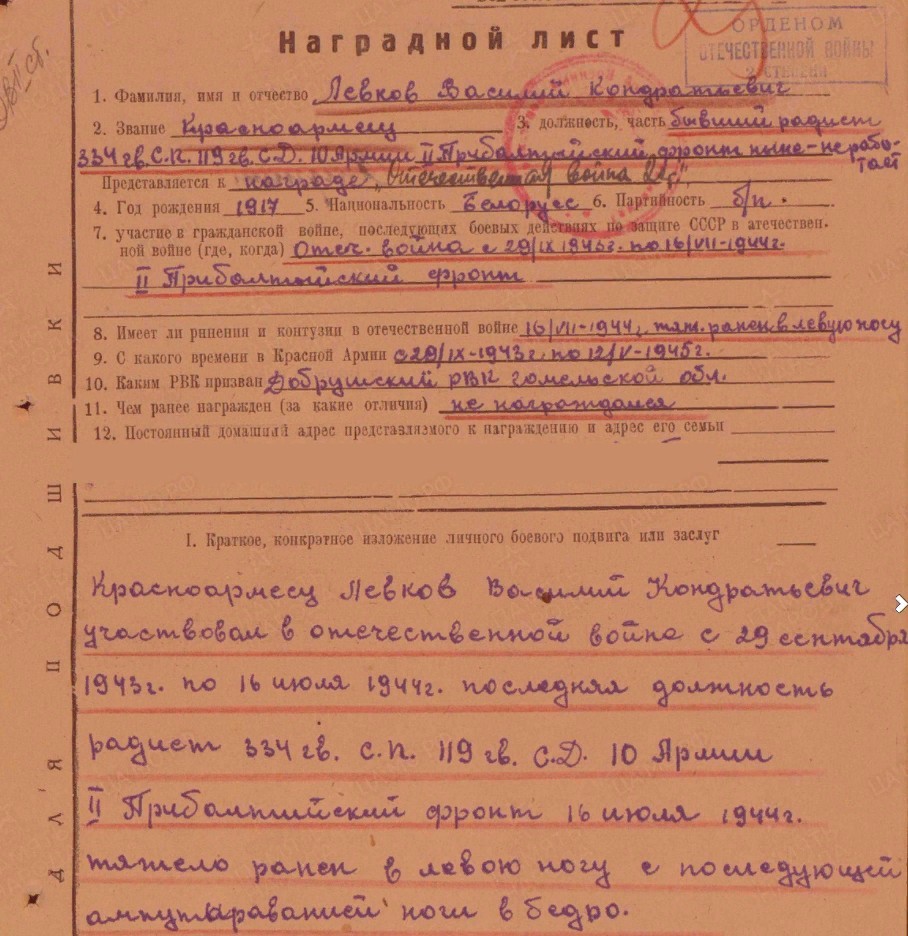 Наградной лист
ОРДЕНОМ
ОТЕЧЕСТВЕННОЙ ВОЙНЫ
2 СТЕПЕНИ
1. Фамилия, имя и отчество Левков Василий Кондратьевич
2. Звание Красноармец 3. должность, часть бывший радист
334 гв. С.п. 119 гв. С.Д. 10 Армии II Прибалтийский фронт ныне-не рабо-
тает
Представляется к награде „Отечественная война 2ст",
4. Год рождения 1917 5. Национальность Белорусс 6. Партийность б/п.
7. участие в гражданской войне, последующих боевых действиях по защите СССР в атечествен-
ной войне (где, когда) Отеч. война с 29/IX 1943г. по 16/VII-1944г.
II Прибалтийский фронт
8. Имеет ли ринения и контузии в отечественной войне 16/VII-1944, тяж. ранен в левую ногу
9. С какого времени в Красной Армии с 29/IX-1943г. по 12/V-1945г.
10. Каким РВК призван Добрушский РВК Гомельской обл.
11. Чем ранее награжден (за какие отличия) не награждался
12. Постоянный домашний адрес представлязмого к награждению и адрес его семьи
ДЛЯ ПОДШИВКИ
I. Краткое, конкратное изложение личного боевого подвига или заслуг
Красноармец Левков Василий Кондратьевич
участвовал в отечественной война с 29 сентября
1943г. по 16 июля 1944г. последняя должность
радист 334 гв. с.п. 119 гв. С.Д. 10 Армии
II Прибалтийский фронт 16 июля 1944г.
тяжело ранен в левою ногу с последующей
ампутыраванией ноги в бедро.